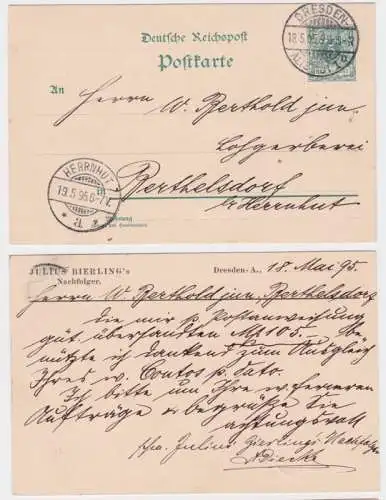 DRESDEN-
18.5.95.8-9V.
ALTSTADT
Deutsche Reichspost
Postkarte
An
Herrn W. Berthold jun.
Lohgerberei
HERRNHUT
19.5.95.6-7V.
* a *
in
Berthelsdorf
b/Herrnhut
Wohnung
JULIUS BIERLING's
Nachfolger.
Dresden-A., 18. Mai 95.
Herrn W. Berthold jun., Berthelsdorf
die mir p. Postanweisung
güt. übersandten M 105.- be
nützte ich dankend zum Ausgleich
Ihres w. Contos p. Sato.
Ich bitte um Ihre w. ferneren
Aufträge & begrüße Sie
achtungsvoll
Julius Bierlings Nachfolger